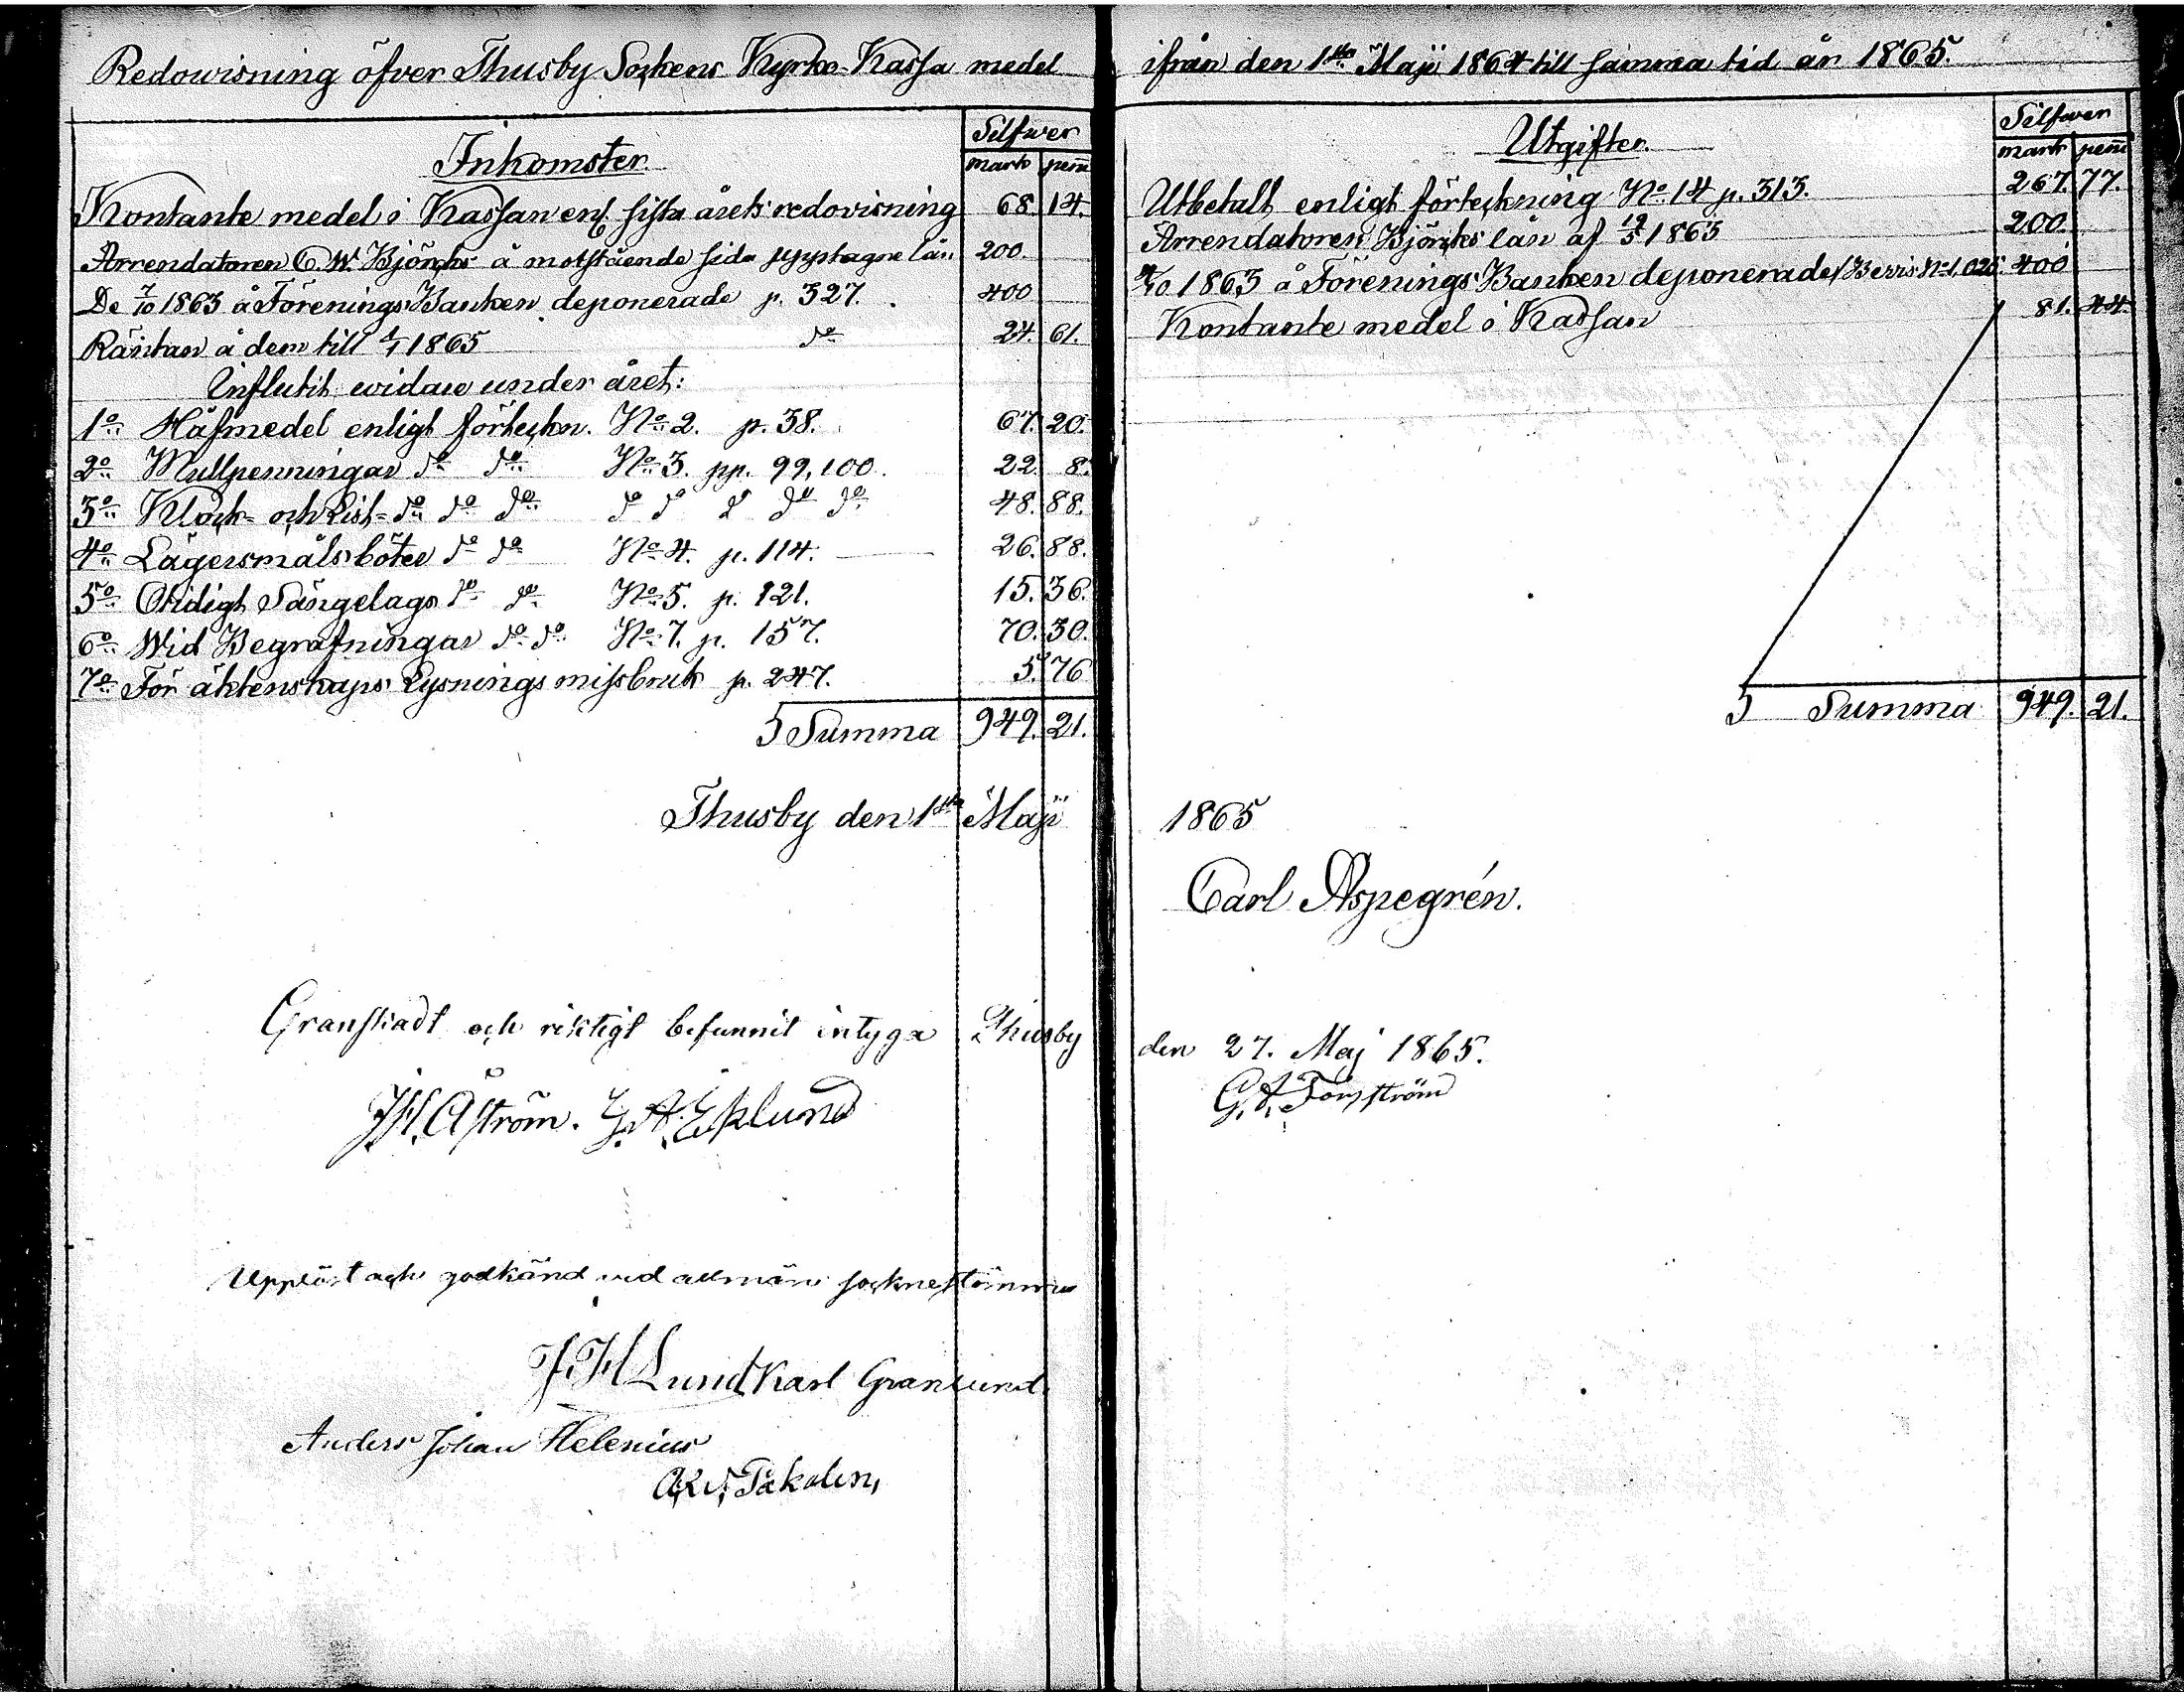 Redowisning öfver Thusby Sockens Kyrko-Kassa medel
Inkomster.
Silfwer
mark penni
Kontante medel i Kassan enl. sista årets redovisning 68. 14.
Arrendatoren C. W. Björcks å motstående sida upptagne lån 200.
De 7/10 1863 å Förenings Banken deponerade p. 327. 400
Räntan å dem till 1/1 1865 do 24. 61.
Influtit widare under året:
1o Håfmedel enligt förteckn. No 2. p. 38. 67. 20.
2o Mullpenningar do do No 3. pp. 99, 100. 22. 8.
3o Klock- och List- do do do do do do do do 48. 88.
4o Lägersmålsböter do do No 4. p. 114. 26. 88.
5o Otidigt Sängelags do do No 5. p. 121. 15. 36.
6o Wid Begrafningar do do No 7. p. 157. 70. 30.
7o För äktenskaps Lysnings missbruk p. 247. 5. 76
Summa 949. 21.
Thusby den 1sta Maji
Granskadt och riktigt befunnit intyga Thusby
J.H. Åström. G. A. Eklund
Uppläst och godkänd vid allmän socknestämma
J. H Lund Karl Granlund
Anders Johan Helenius
Takolin,
ifrån den 1sta Maji 1864 till samma tid år 1865.
Utgifter.
Silfwer
mark penni
Utbetalt enligt förteckning No 14 p. 313. 267. 77.
Arrendatoren Björcks lån af 1863 200.
1863 å Förenings Banken deponerade/Bevis No 1,026. 400
Kontante medel i Kassan 81. 44.
Summa 949. 21.
1865
Carl Aspegrén.
den 27. Maj 1865.
G. A. Forsström